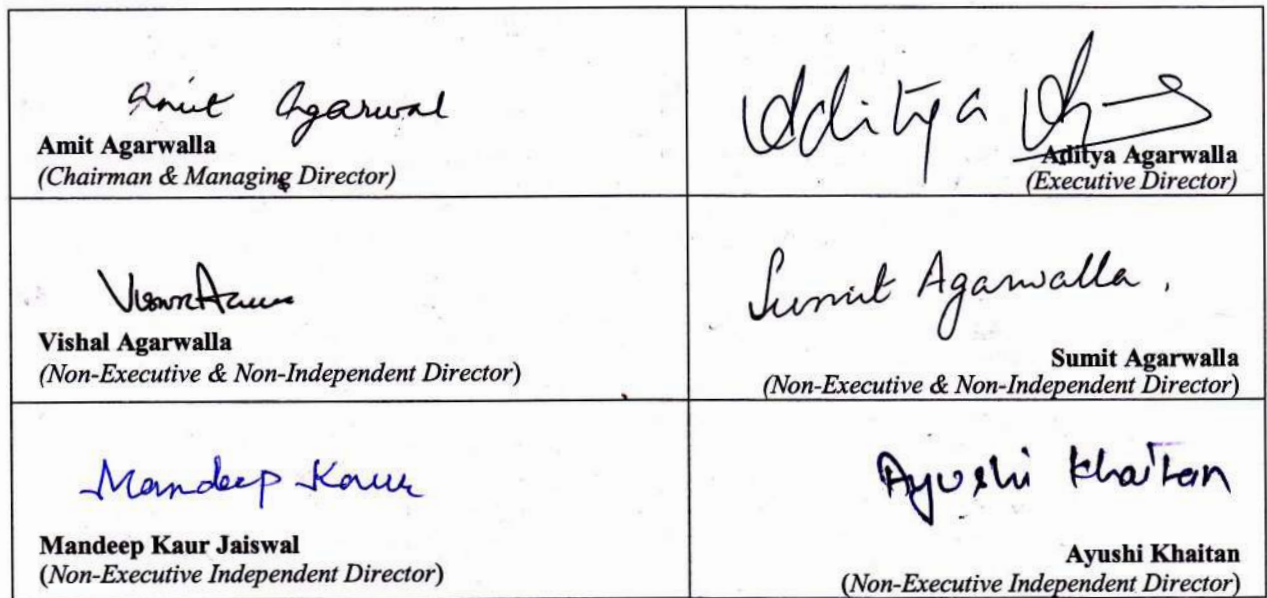 Amit Agarwal
Amit Agarwalla
(Chairman & Managing Director)
Aditya
Aditya Agarwalla
(Executive Director)
Vishal Agarwalla
(Non-Executive & Non-Independent Director)
Sumit Agarwalla.
Sumit Agarwalla
(Non-Executive & Non-Independent Director)
Mandeep Kaur
Mandeep Kaur Jaiswal
(Non-Executive Independent Director)
Ayushi Khaitan
Ayushi Khaitan
(Non-Executive Independent Director)